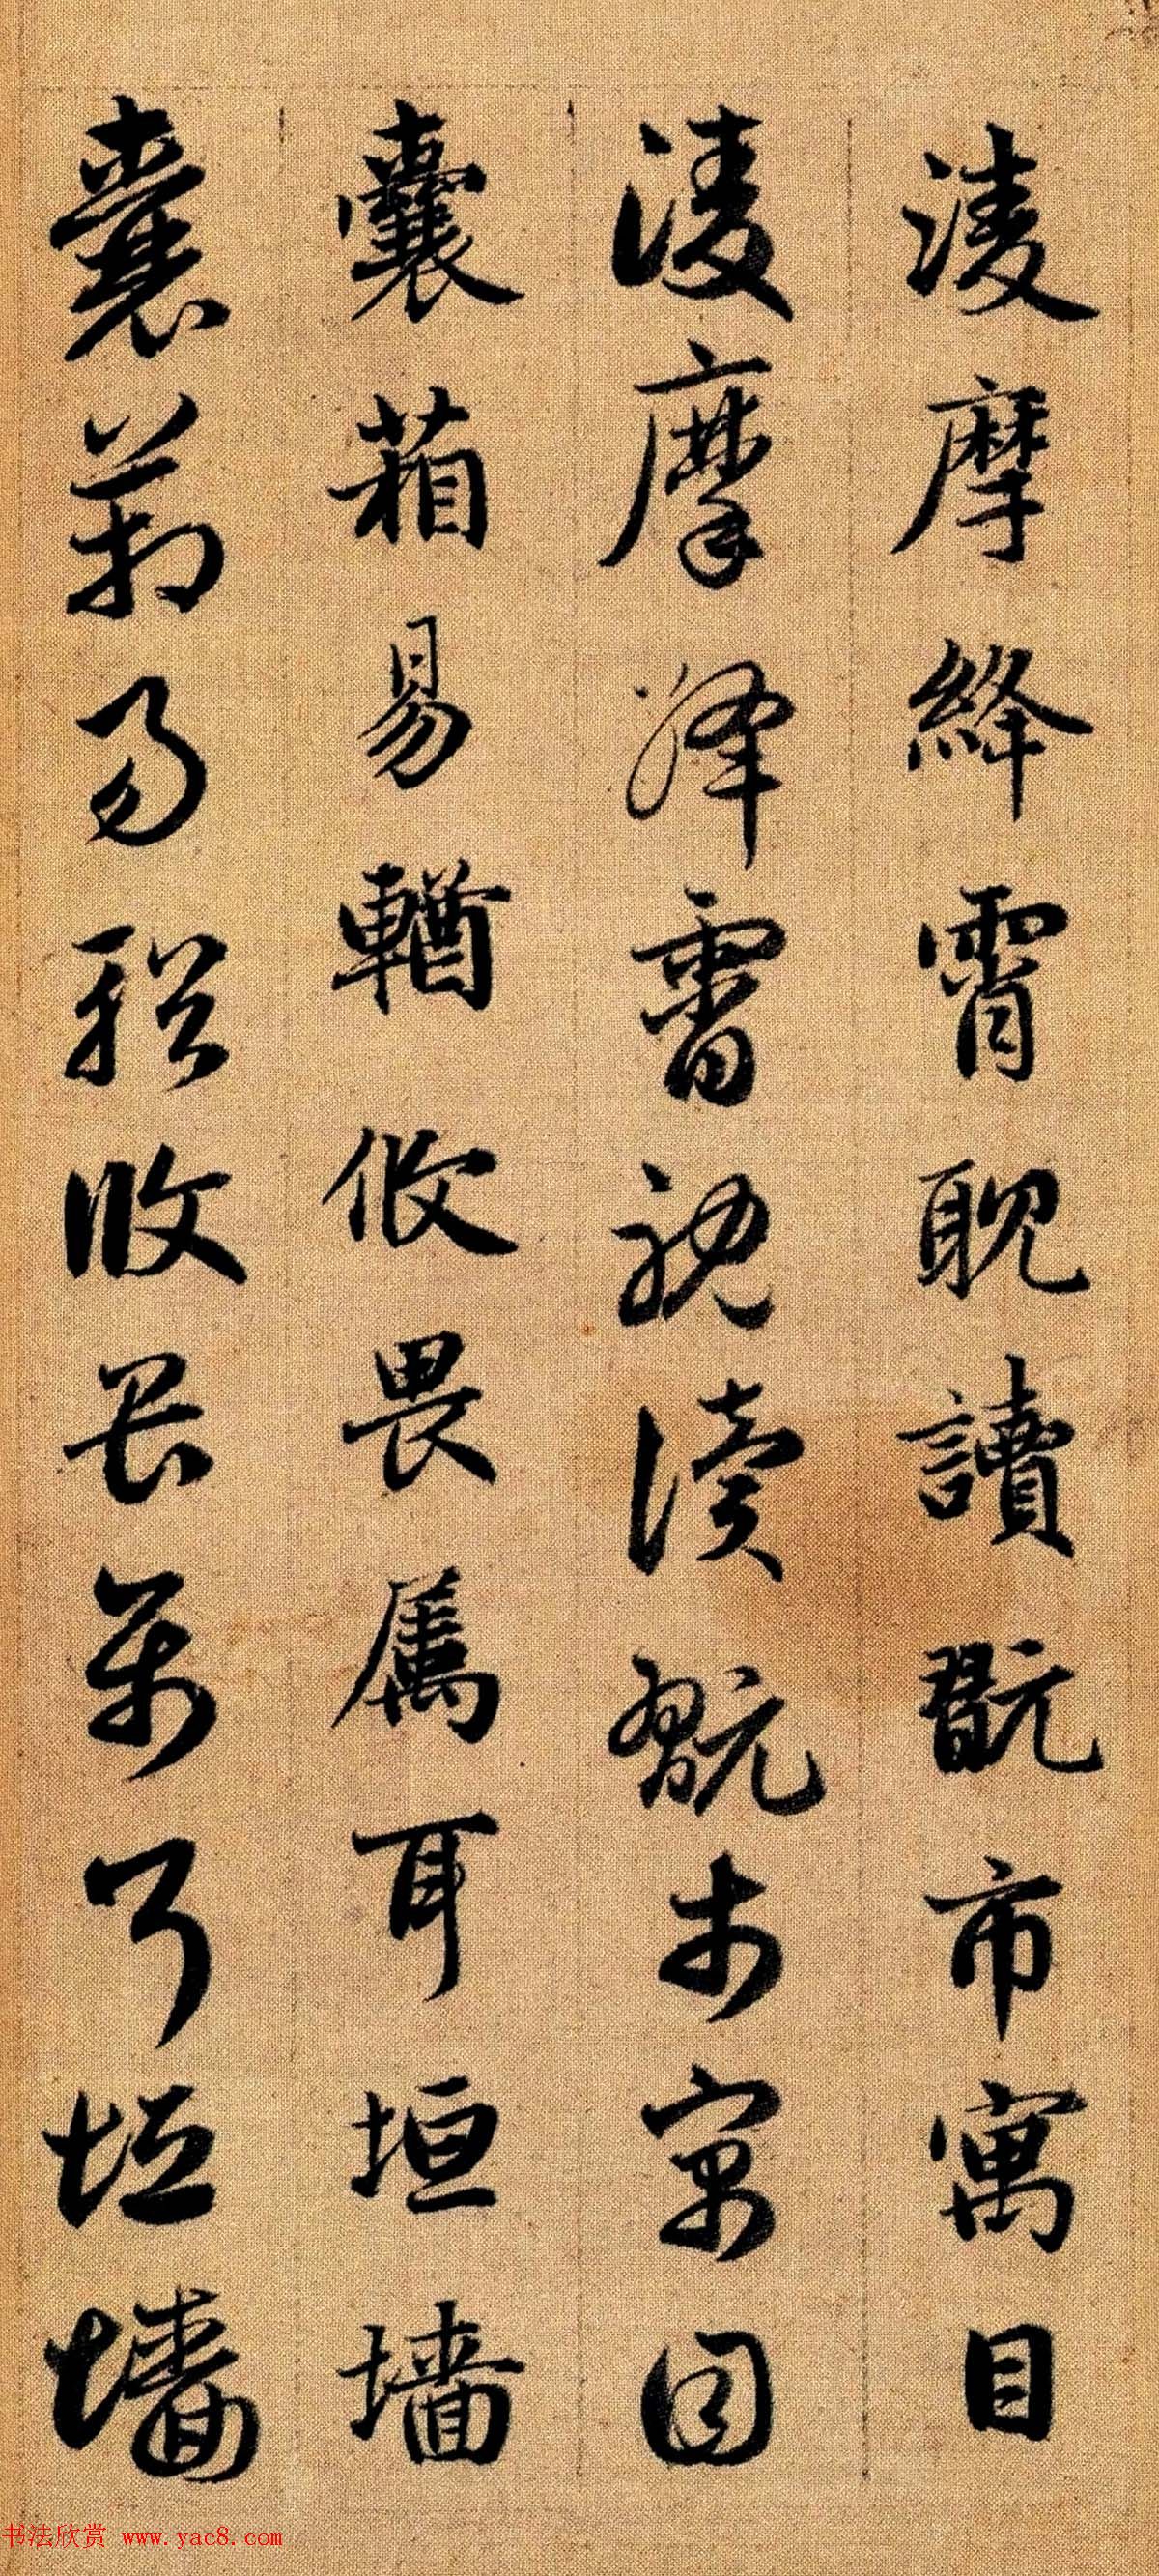 凌摩絳霄耽讀翫市寓目
凌摩絳霄耽讀翫市寓目
囊箱易輶攸畏属耳垣墙
囊箱易輶攸畏属耳垣墙
书法欣赏 www.yac8.com